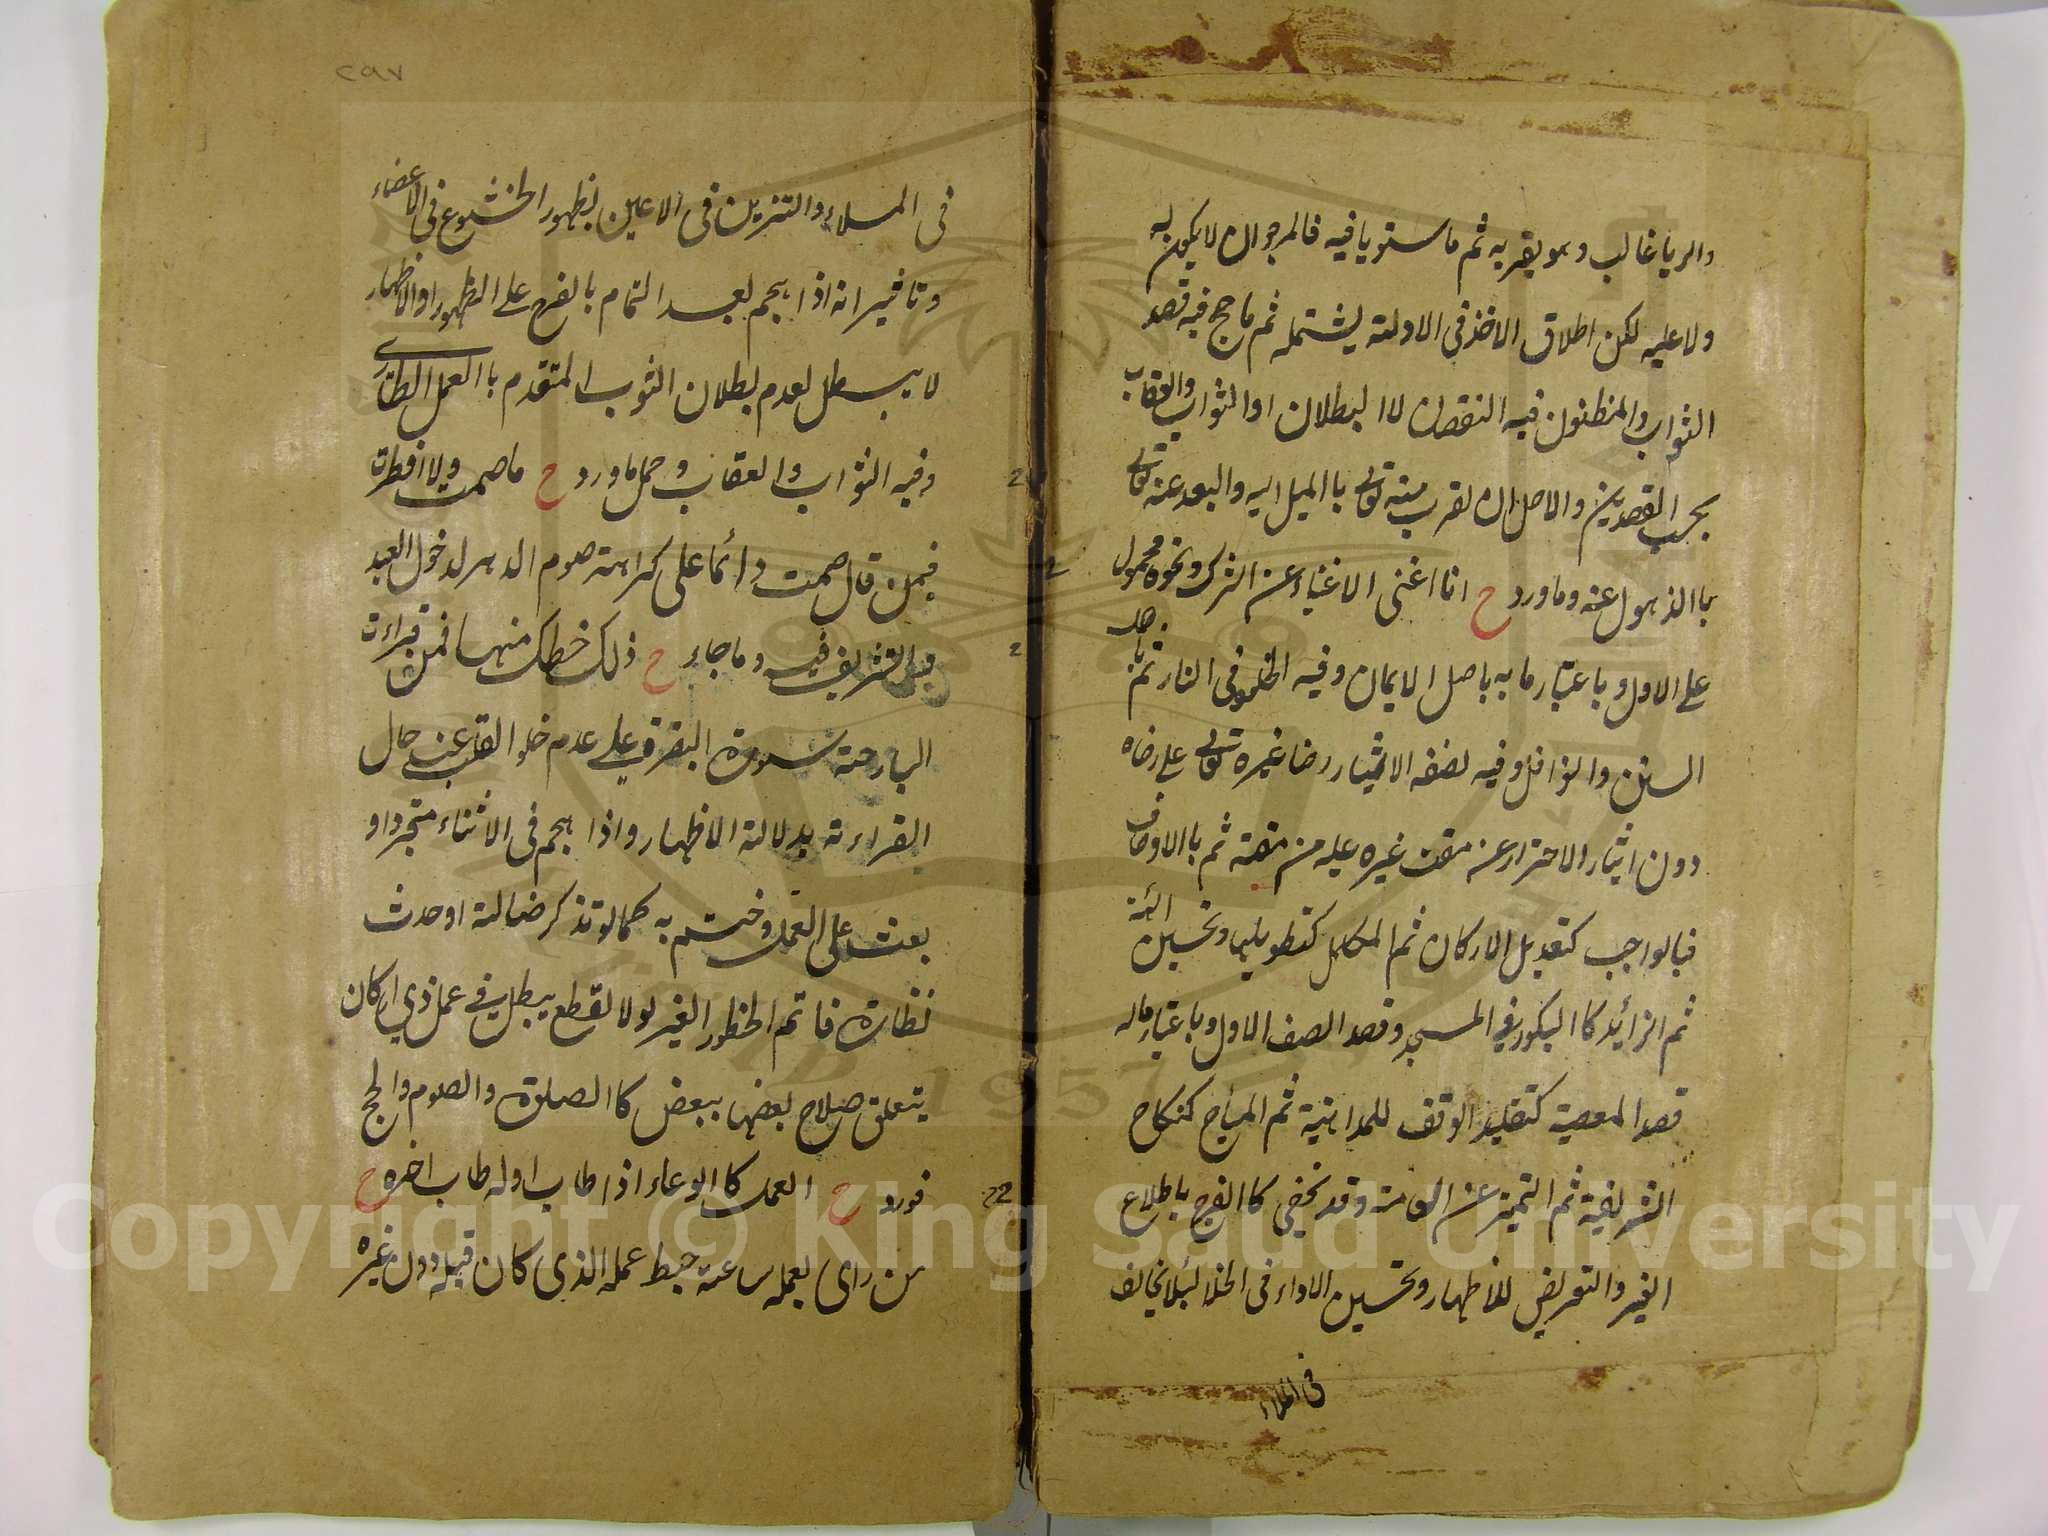 والريا غالب وهو يقربه ثم ما ستويا فيه فالمرجو ان لا يكون له
ولا عليه لكن اطلاق الاخذ في الادلة يشتمله ثم ما رجح فيه قصد
الثواب والمظنون فيه النقصان لا البطلان او الثواب والعقاب
بحسب القصدين والاصل ان لقرب منه تعالى باالميل اليه والبعد عنه تعالى
باالذهول عنه وما ورد ح انا اغنى الاغنياء عن الشرك ونحوه محمول
على الاول وباعتبار ما به باصل الايمان وفيه الخلود في النار ثم باصل
السنن والنوافل وفيه لضفه الاثيار رضا غيره تعالى على رضاه
دون ايثار الاحتراز عن مقت غيره عليه من مقته ثم باالاوصاف
فبالواجب كتعديل الاركان ثم المكمل كتطويلها وتحسين الهيئة
ثم الزائد كاالبكور في المسجد وقصد الصف الاول وباعتبار ماله
قصد المعصية كتقليد الوقف للمداهنة ثم المباح كنكاح
الشريفية ثم التميز عن العامة وقد تخفى كاالفرح باطلاع
الغير والتعريض للاظهار وتحسين الاداء في الخلا لئلا يخالف
في الملاء
٢٩٧
في الملاء والتزين في الاعين بظهور الخشوع في الاعضاء
وتاثيرانه اذا هجم بعد التمام باالفرح على الظهور او الاظهار
لا يبطل لعدم بطلان الثوب المتقدم باالعمل الطاري
وفيه الثواب والعقاب وحمل ما ورد ح ما صمت ولا افطرة
فيمن قال صمت دائما على كراهة صوم الدهر لدخول العيد
والتشريق فيه وما جاء ح ذلك خطك منها فمن قراءة
البارحة سورة البقرة على عدم خلو القلب عنه حال
القراءة بدلالة الاظهار واذا هجم في الاثناء متجردا و
بعث على العمل وختم به كما لو تذكر ضالة او حدث
نظارة فاتم الحظور الغير لولا لقطع يبطل في عمل ذي اركان
يتعلق صلاح بعضها ببعض كاالصلوة والصوم والحج
فورد ح العمل كاالوعاء اذا طاب اوله طاب اخره ح
من راى بعمله ساعة حبط عمله الذى كان قبله دون غيره